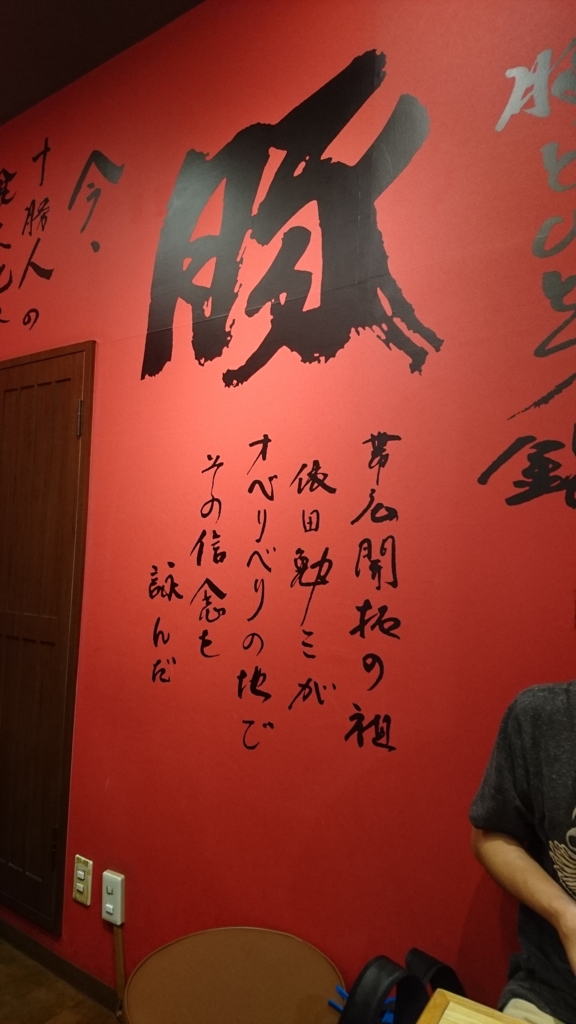 豚とひとつ鍋
豚
帯広開拓の祖
依田勉三が
オベリベリの地で
その信念を
詠んだ
今、
十勝人の